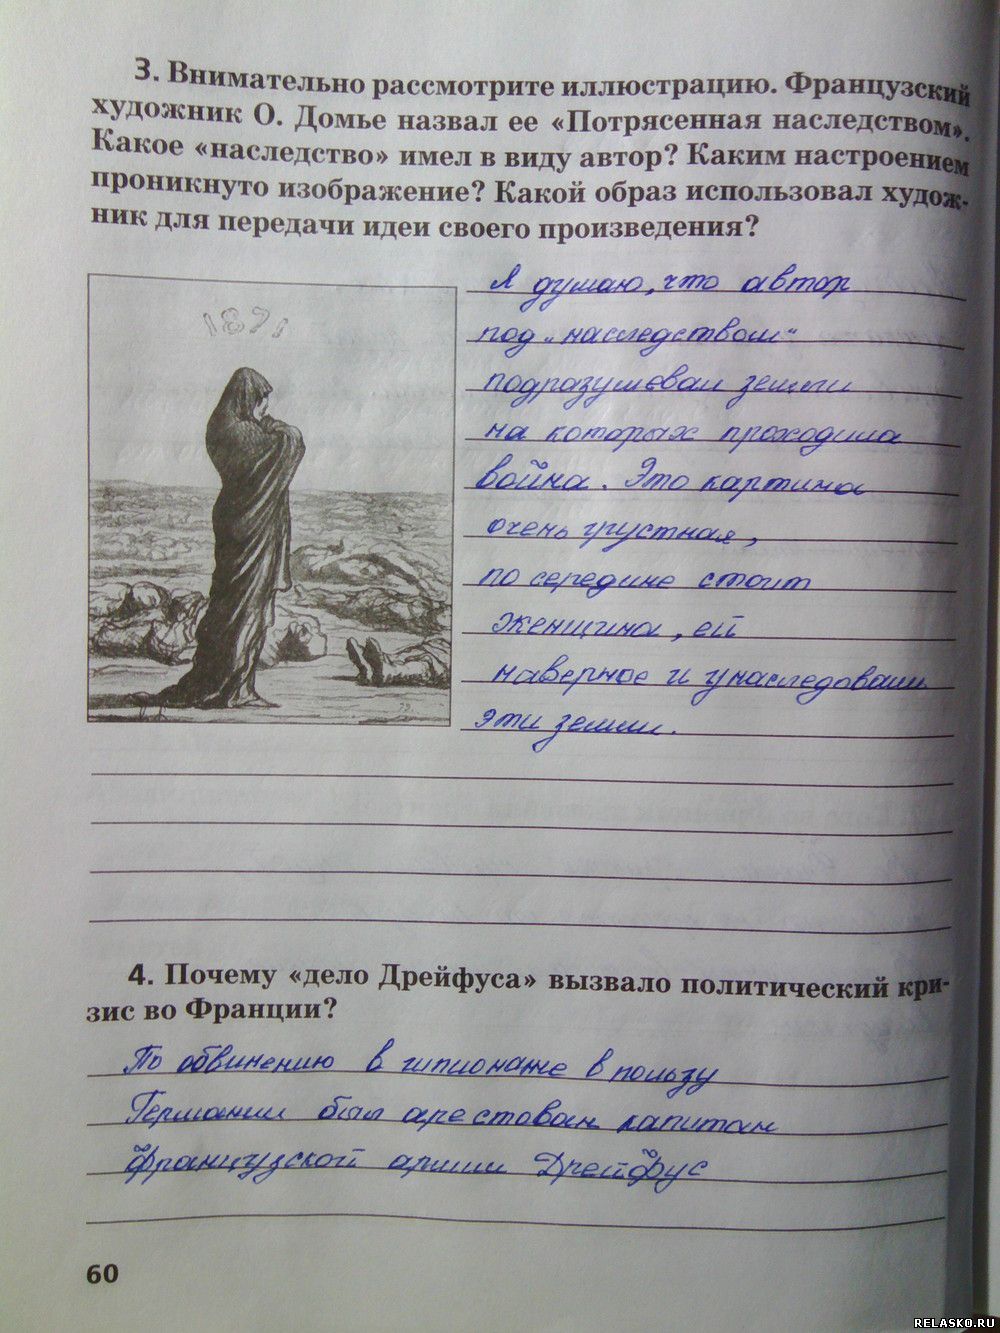 3. Внимательно рассмотрите иллюстрацию. Французский
художник О. Домье назвал ее «Потрясенная наследством».
Какое «наследство» имел в виду автор? Каким настроением
проникнуто изображение? Какой образ использовал худож-
ник для передачи идеи своего произведения?
1871
Я думаю, что автор
под „наследством“
подразумевал земли
на которых проходила
война. Это картина
очень грустная,
по середине стоит
женщина, ей
наверное и унаследовали
эти земли.
4. Почему «дело Дрейфуса» вызвало политический кри-
зис во Франции?
По обвинению в шпионаже в пользу
Германии был арестован капитан
французской армии Дрейфус
60
RELASKO.RU